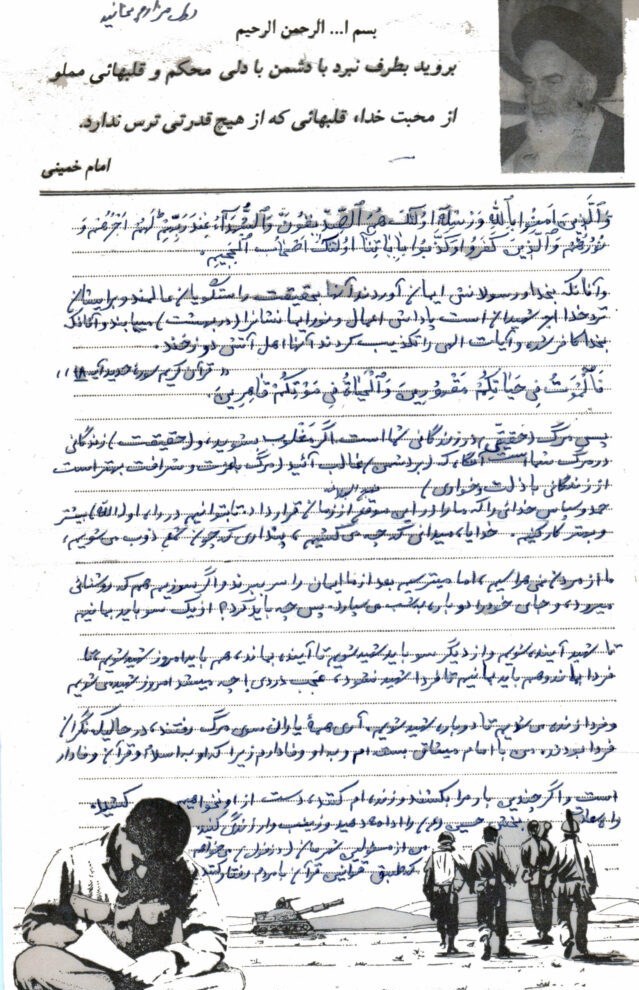 بسم ا... الرحمن الرحیم
بروید بطرف نبرد با دشمن با دلی محکم و قلبهائی مملو
از محبت خدا، قلبهائی که از هیچ قدرتی ترس ندارد.
امام خمینی
وَالَّذینَ امَنوُا بِاللهِ وَ رُسُلِهِ اوُلئکَ هُمُ الصِّدیقوُنَ وَالشُّهَداءُ عِندَ رَبِّهِمْ لَهُم اَجْرُهُم وَ
نوُرُهُم وَالَّذینَ کَفَروُا وَ کَذَّبوُا بِایاتِنا اوُلئکَ اَصْحابُ الْجَحیمِ.
و آنانکه بخدا و رسولانش ایمان آوردند آنها بحقیقت راستگویان عالمند و برایشان
نزد خدا اجر شهیدان است پاداش اعمال و نور ایمانشانرا (در بهشت) مییابند و آنانکه
بخدا کافر شده و آیات الهی را تکذیب کردند آنها اهل آتش دوزخند.
قرآن کریم سوره حدید آیه ۱۸
فَالْمَوتُ فی حَیاتِکُمْ مَقْهُورینَ وَالْحَیاةُ فی مَوْتِکُمْ قاهِرینَ.
پس مرگ (حقیقی) در زندگانی شما است اگر مغلوب شوید، و (حقیقت) زندگانی
در مرگ شما است آنگاه که (بر دشمن) غالب آئید (مرگ با عزت و شرافت بهتر است
از زندگانی با ذلت و خواری)
حمد و سپاس خدائی را که ما را در این موقع از زمان قرار داد. تا بتوانیم در راه او (الله) بیشتر
و بهتر کار کنیم. خدایا، میدانی که چه می‌کشیم، پنداری که چون شمع ذوب می‌شویم،
ما از مردن نمی‌هراسیم، اما میترسیم بعد از ما ایمان را سر ببرند و اگر سوزیم هم که روشنائی
میرود، و جای خود را دوباره بشب می‌سپارد. پس چه باید کرد؟ از یک سو باید بمانیم
تا شهید آینده شویم و از دیگر سو باید شهید شویم تا آینده بماند، هم باید امروز شهید شویم تا
فردا بماند و هم باید بمانیم تا فردا شهید نشود، عجب دردی! چه میشد امروز شهید می‌شدیم
و فردا زنده می‌شدیم تا دوباره شهید شویم. آری همهٔ یاران سوی مرگ رفتند، در حالیکه نگران
فردا بودند. من با امام میثاق بسته‌ام و به او وفادارم زیرا که او به اسلام و قرآن وفادار
است و اگر چندین بار مرا بکشند و زنده‌ام کنند، دست از او نخواهم کشید.
حسین را ادامه دهید و زینب وار زندگی کنید
من از مسئولین شهرمان (دزفول) می‌خواهم
که طبق قوانین قرآن با مردم رفتار کنند